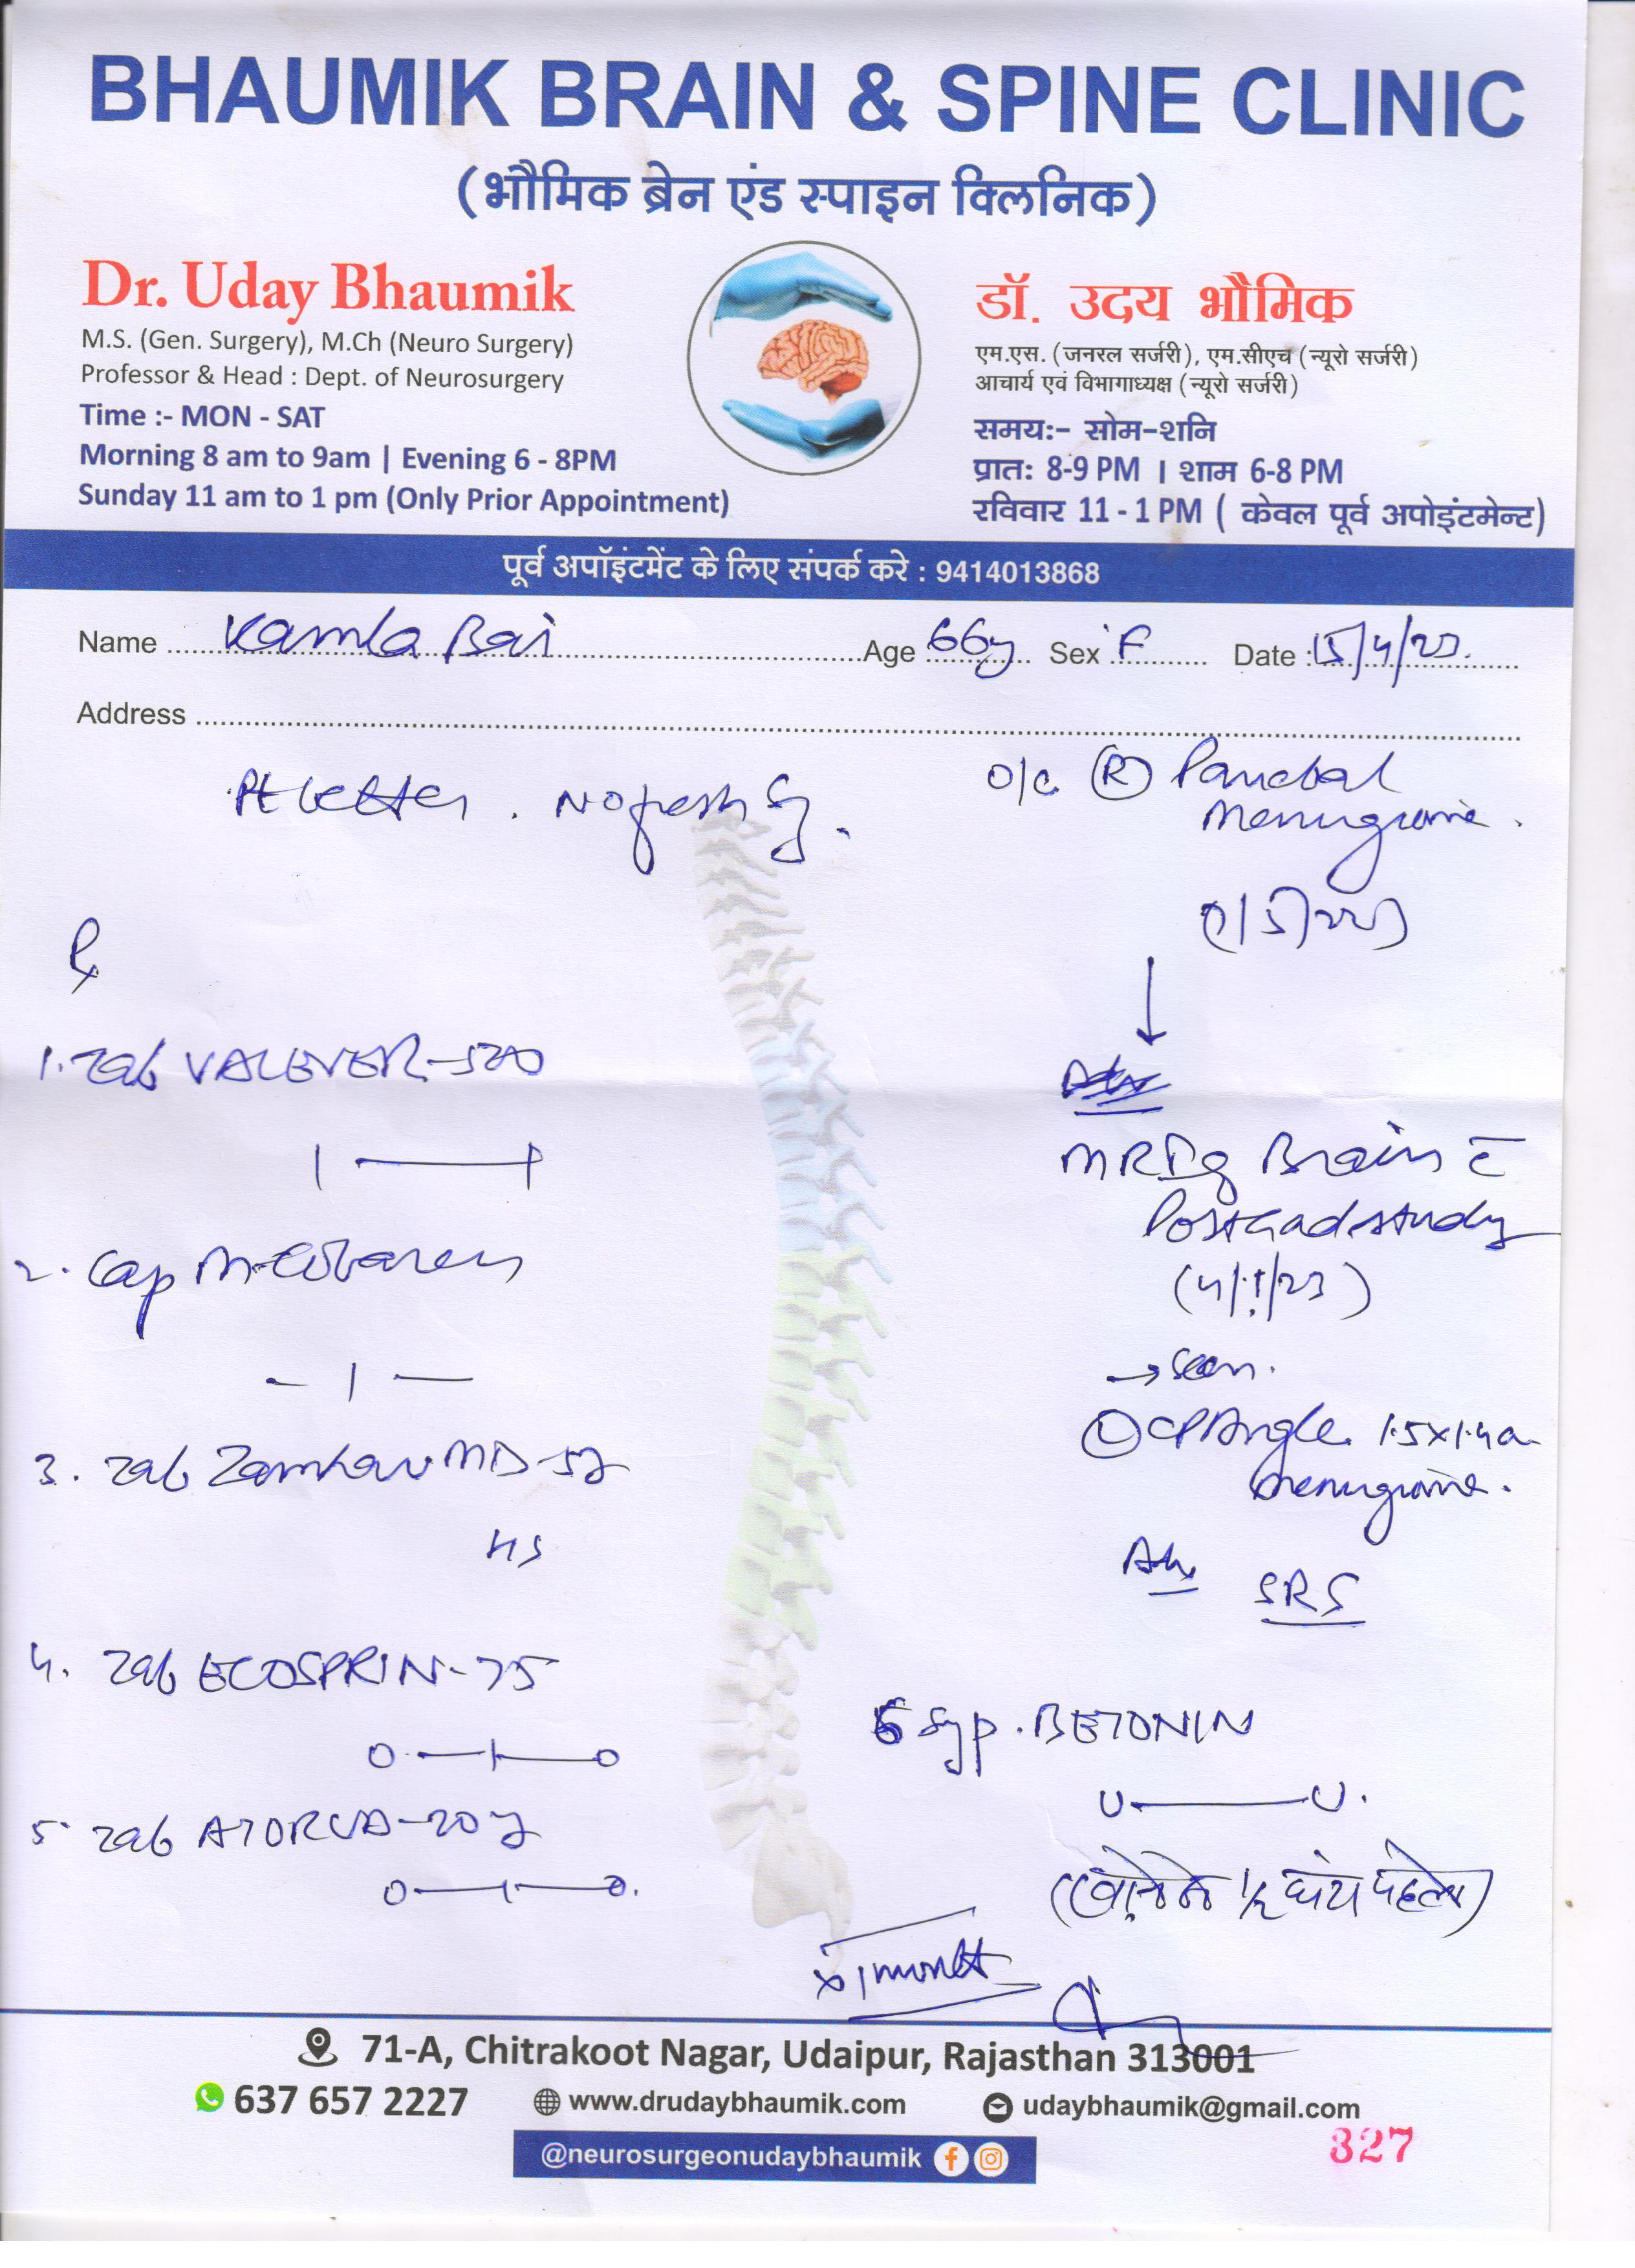 BHAUMIK BRAIN & SPINE CLINIC
(भौमिक ब्रेन एंड स्पाइन क्लिनिक)
Dr. Uday Bhaumik
M.S. (Gen. Surgery), M.Ch (Neuro Surgery)
Professor & Head : Dept. of Neurosurgery
Time :- MON - SAT
Morning 8 am to 9am | Evening 6 - 8PM
Sunday 11 am to 1 pm (Only Prior Appointment)
डॉ. उदय भौमिक
एम.एस. (जनरल सर्जरी), एम.सीएच (न्यूरो सर्जरी)
आचार्य एवं विभागाध्यक्ष (न्यूरो सर्जरी)
समय:- सोम-शनि
प्रात: 8-9 PM | शाम 6-8 PM
रविवार 11 - 1 PM ( केवल पूर्व अपोइंटमेन्ट)
पूर्व अपॉइंटमेंट के लिए संपर्क करे : 9414013868
Name Kamla Bai Age 66y Sex F Date : 15/4/23.
Address
Pt better. No fresh
O/c (R) Parietal
Meningioma.
1. Tab VALEVER-500
MRIg Brain c̄
Post Gad study
2. Cap
→ seen.
(L) CP Angle 1.5x1.4
meningioma.
3. Tab MD-
HS
Adv SRS
4. Tab ECOSPRIN-75
O — | — O
5. Tab ATORVA-20
O — | — O.
6 Syp. BETONIN
(खाने के 1/2 घंटा पहले)
x 1 month
71-A, Chitrakoot Nagar, Udaipur, Rajasthan 313001
637 657 2227 www.drudaybhaumik.com udaybhaumik@gmail.com
@neurosurgeonudaybhaumik
327